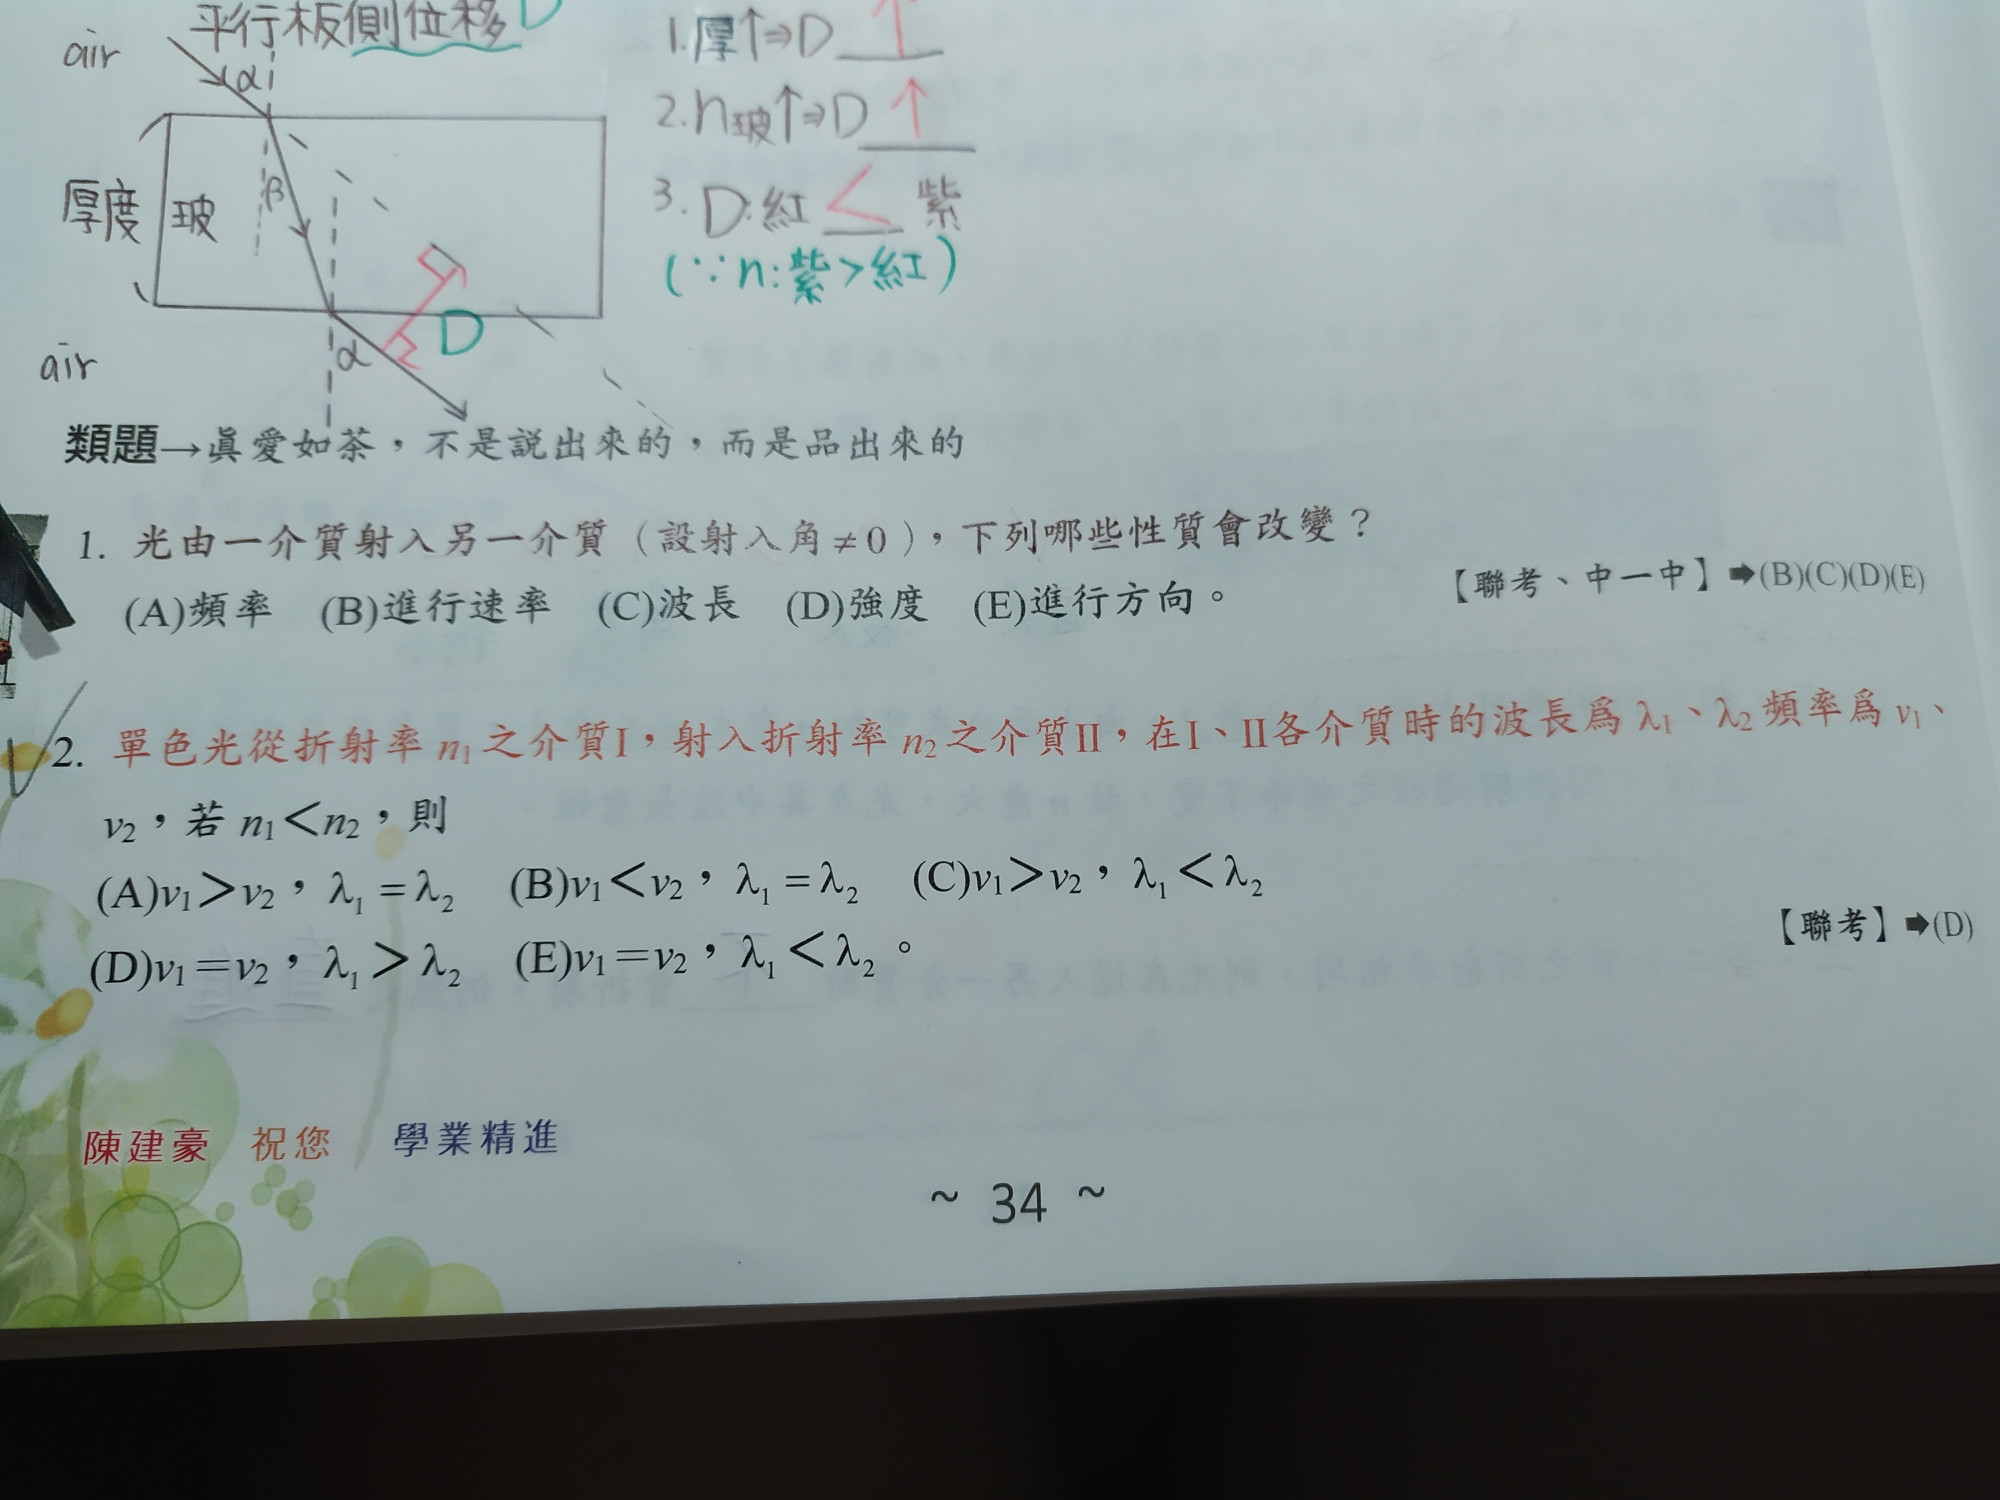 平行板側位移 D
air
α
厚度
玻
β
D
α
air
1.厚↑⇒D ↑
2.n玻↑⇒D ↑
3. D:紅 < 紫
(∵n:紫>紅)
類題→真愛如茶，不是説出來的，而是品出來的
1. 光由一介質射入另一介質（設射入角≠0），下列哪些性質會改變？
(A)頻率 (B)進行速率 (C)波長 (D)強度 (E)進行方向。 【聯考、中一中】➡(B)(C)(D)(E)
2. 單色光從折射率 n₁ 之介質I，射入折射率 n₂ 之介質II，在I、II各介質時的波長爲 λ₁、λ₂ 頻率爲 ν₁、
ν₂，若 n₁＜n₂，則
(A)ν₁＞ν₂，λ₁＝λ₂ (B)ν₁＜ν₂，λ₁＝λ₂ (C)ν₁＞ν₂，λ₁＜λ₂
(D)ν₁＝ν₂，λ₁＞λ₂ (E)ν₁＝ν₂，λ₁＜λ₂。 【聯考】➡(D)
陳建豪 祝您 學業精進
~ 34 ~